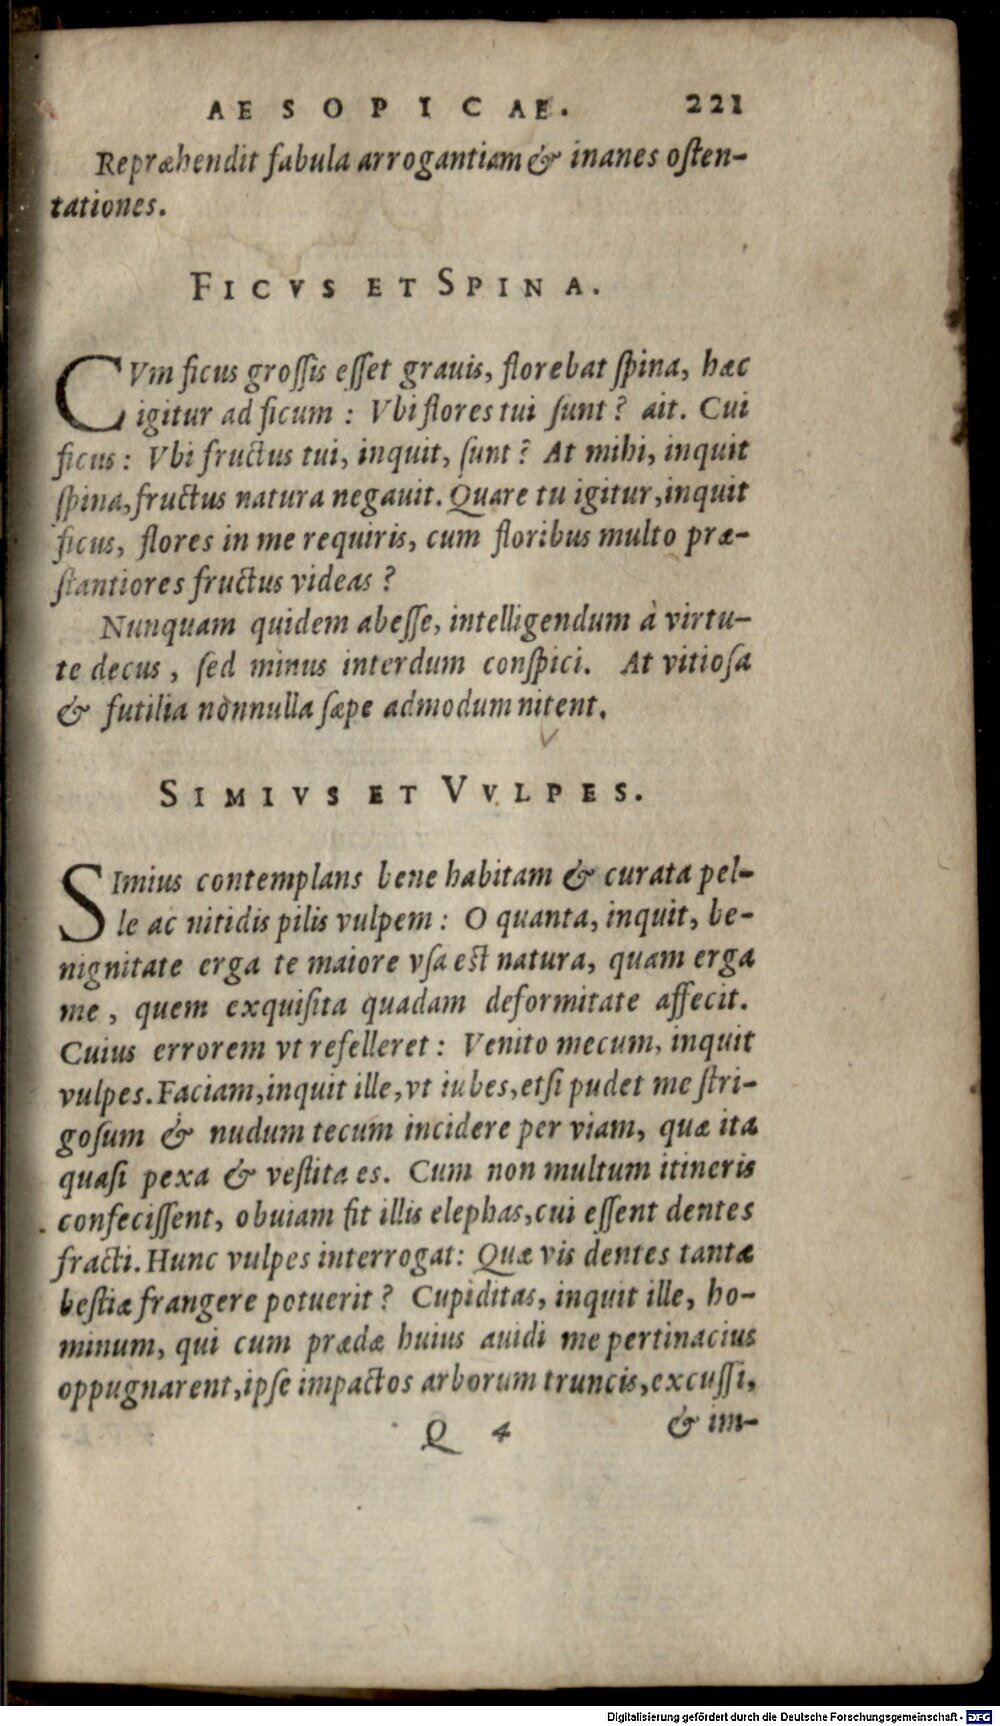 AESOPICAE. 221
Repræhendit fabula arrogantiam & inanes osten-
tationes.
FICVS ET SPINA.
CVm ficus grossis esset grauis, florebat spina, hæc
igitur ad ficum : Vbi flores tui sunt ? ait. Cui
ficus : Vbi fructus tui, inquit, sunt ? At mihi, inquit
spina, fructus natura negauit. Quare tu igitur, inquit
ficus, flores in me requiris, cum floribus multo præ-
stantiores fructus videas ?
Nunquam quidem abesse, intelligendum à virtu-
te decus, sed minus interdum conspici. At vitiosa
& futilia nònnulla sæpe admodum nitent.
SIMIVS ET VVLPES.
SImius contemplans bene habitam & curata pel-
le ac nitidis pilis vulpem : O quanta, inquit, be-
nignitate erga te maiore vsa est natura, quam erga
me, quem exquisita quadam deformitate affecit.
Cuius errorem vt refelleret : Venito mecum, inquit
vulpes. Faciam, inquit ille, vt iubes, etsi pudet me stri-
gosum & nudum tecum incidere per viam, quæ ita
quasi pexa & vestita es. Cum non multum itineris
confecissent, obuiam fit illis elephas, cui essent dentes
fracti. Hunc vulpes interrogat: Quæ vis dentes tantæ
bestiæ frangere potuerit ? Cupiditas, inquit ille, ho-
minum, qui cum prædæ huius auidi me pertinacius
oppugnarent, ipse impactos arborum truncis, excussi,
Q 4 & im-
Digitalisierung gefördert durch die Deutsche Forschungsgemeinschaft - DFG